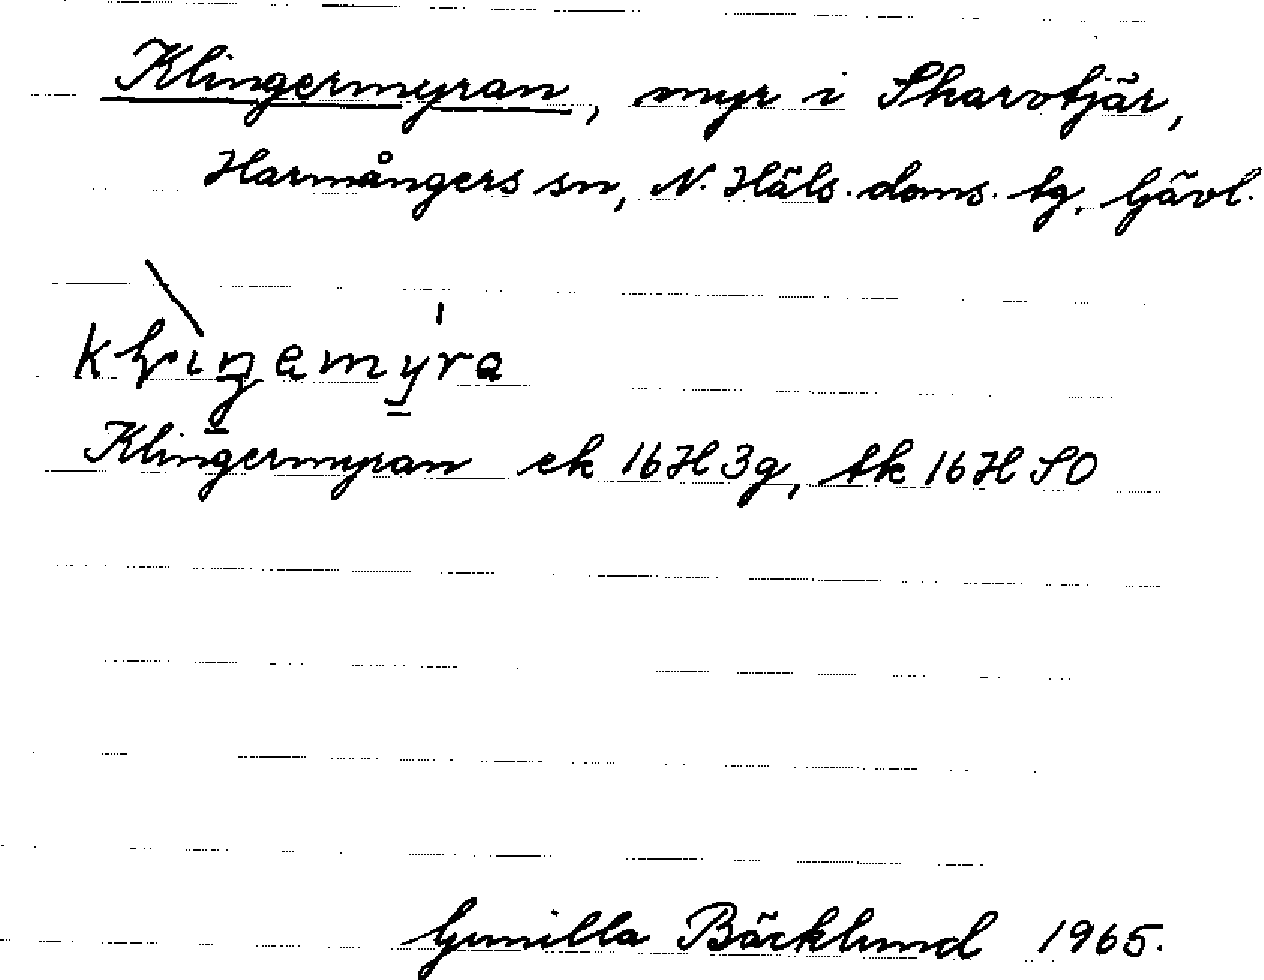 Klingermyran, myr i Skarvtjär,
Harmångers sn, N. Häls. doms. tg, Gävl.
Klingermyran ek 16H3g, tk 16H SO
Gunilla Bäcklund 1965.